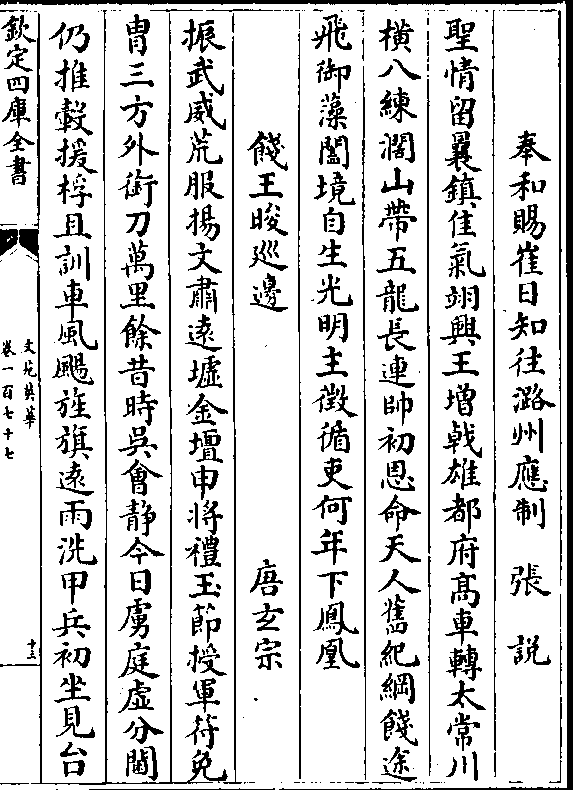 奉和賜崔日知往潞州應制　張説
聖情留曩鎮佳氣翊興王增戟雄都府髙車轉太常川
横八練濶山帶五龍長連帥初恩命天人舊紀綱餞途
飛御藻闔境自生光明主徵循吏何年下鳳凰
餞王晙巡邊　唐玄宗
振武威荒服揚文肅遠墟金壇申将禮玉節授軍符免
胄三方外銜刀萬里餘昔時吳會静今日虜庭虚分閫
仍推轂援桴且訓車風颺旌旗遠雨洗甲兵初坐見台
欽定四庫全書
文苑英華
卷一百七十七
十三